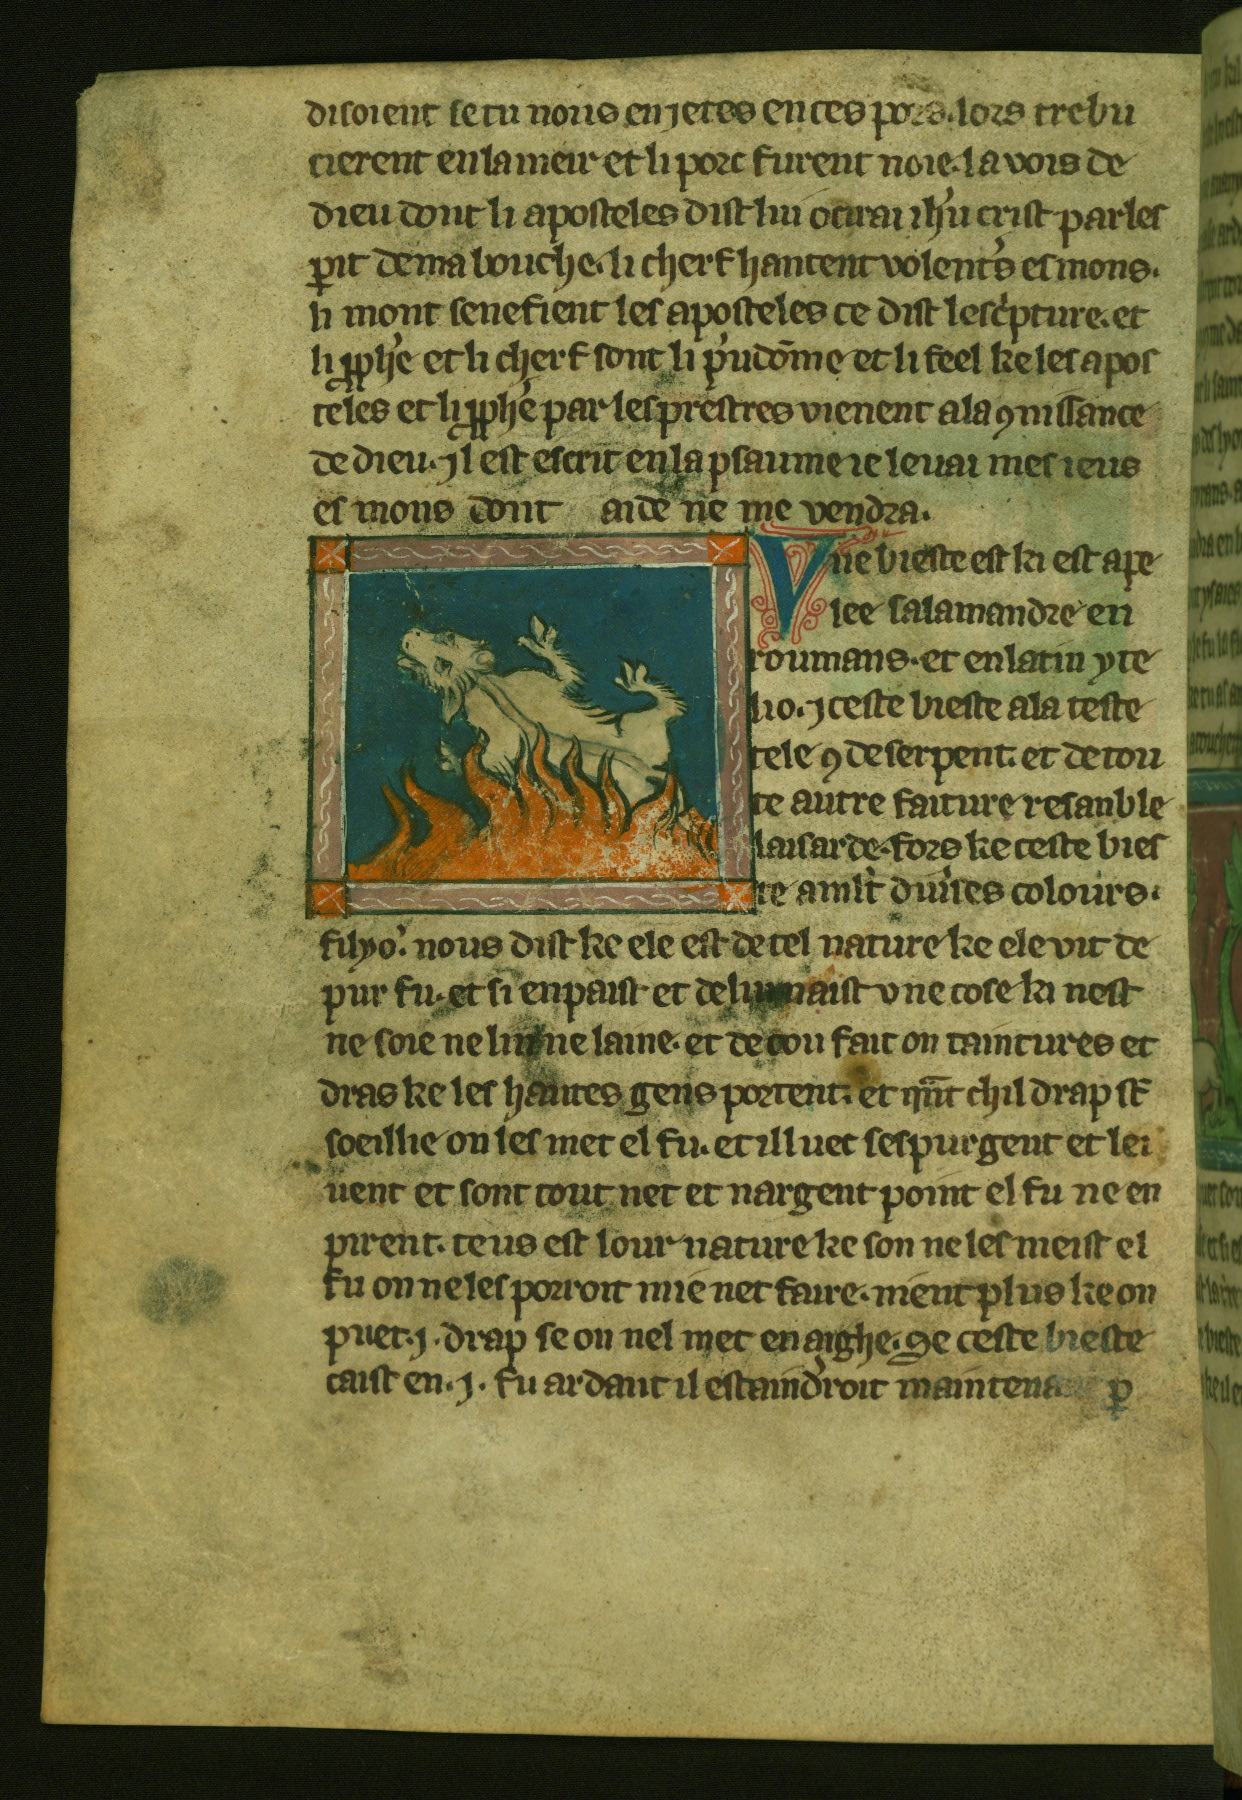 disoient se tu nous enjetes en ces pors. lors trebu
cierent en la meir et li porc furent noie. la vois de
dieu dont li aposteles dist lui ocirai ih'u crist par les
ꝑit de ma bouche. li cherf hantent volent's es mons.
li mont senefient les aposteles ce dist lesc'pture. et
li ꝓphe et li cherf sont li p'udōme et li feel ke les apos
teles et li ꝓphe par les prestres vienent a la ꝯnissance
de dieu. jl est escrit en la psaume ie levai mes ieus
es mons dont aide ne me vendra.
Vne bieste est ki est ape
lee salamandre en
roumans. et en latin yte
lio. jceste bieste a la teste
tele ꝯ de serpent. et de tou
te autre faiture resanble
laisarde. fors ke ceste bies
te a mlt' diu'ses colours.
filyo'. nous dist ke ele est de tel nature ke ele vit de
pur fu. et si en paist et de li naist vne cose ki nest
ne soie ne lin ne laine. et de cou fait on taintures et
dras ke les hautes gens portent. et qn̄t chil drap st̄
soeillie on les met el fu. et illuec sespurgent et lei
uent et sont tout net et nargent point el fu ne en
pirent. teus est lour nature ke son ne les meist el
fu on ne les porroit mie net faire. nient plus ke on
puet .j. drap se on nel met en aighe. Se ceste bieste
caist en .j. fu ardant il estaind'roit maintenant ꝑ